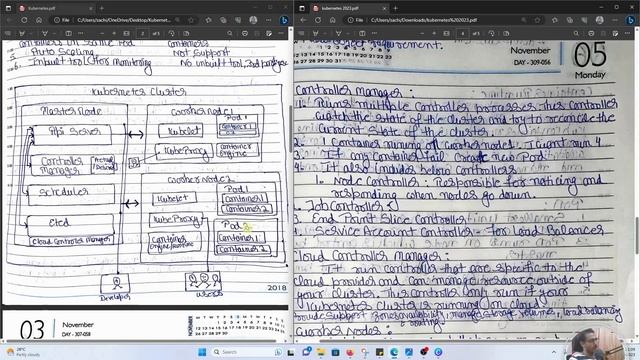 Kubernetes.pdf
C:/Users/sach/OneDrive/Desktop/Kubernet...
Containers in same Pod
Containers
Auto Scaling
Not Support
Inbuilt tool for monitoring
No inbuilt tool, 3rd
Kubernetes Cluster
Master Node
Api Server
Controller Manager
Scheduler
Etcd
Cloud Controller Manager
Worker Node 1
Kubelet
KubeProxy
Pod 1
Container 1
Container Engine
Worker Node 2
Kubelet
KubeProxy
Container
Pod 1
Container 1
Container 2
Pod 2
Container 1
Container 2
Developer
Users
2018
03
November
DAY - 307-058
kubernetes 2023.pdf
C:/Users/sach/Downloads/kubernetes%202023.pdf
November
DAY - 309-056
05
Monday
Controller manager :
Runs multiple Controller processes. This Controller
watch the state of the cluster and try to reconcile the
Current state of the cluster.
2. 1 Container running on Worker Node 1, I want run 4
3. If any Container fail Create new Pod
4. It also includes below controllers
1. Node Controller : Responsible for noticing and
responding when nodes go down.
Job Controller
3. End Point Slice Controller
4. Service Account Controller - For Load Balancer
Cloud Controller Manager :
It run controller that are specific to the
cloud provider and can manage resource outside of
your cluster. This Controller only run if your
Kubernetes Cluster is running on cloud
Worker Nodes :
28°C
Partly cloudy
Search